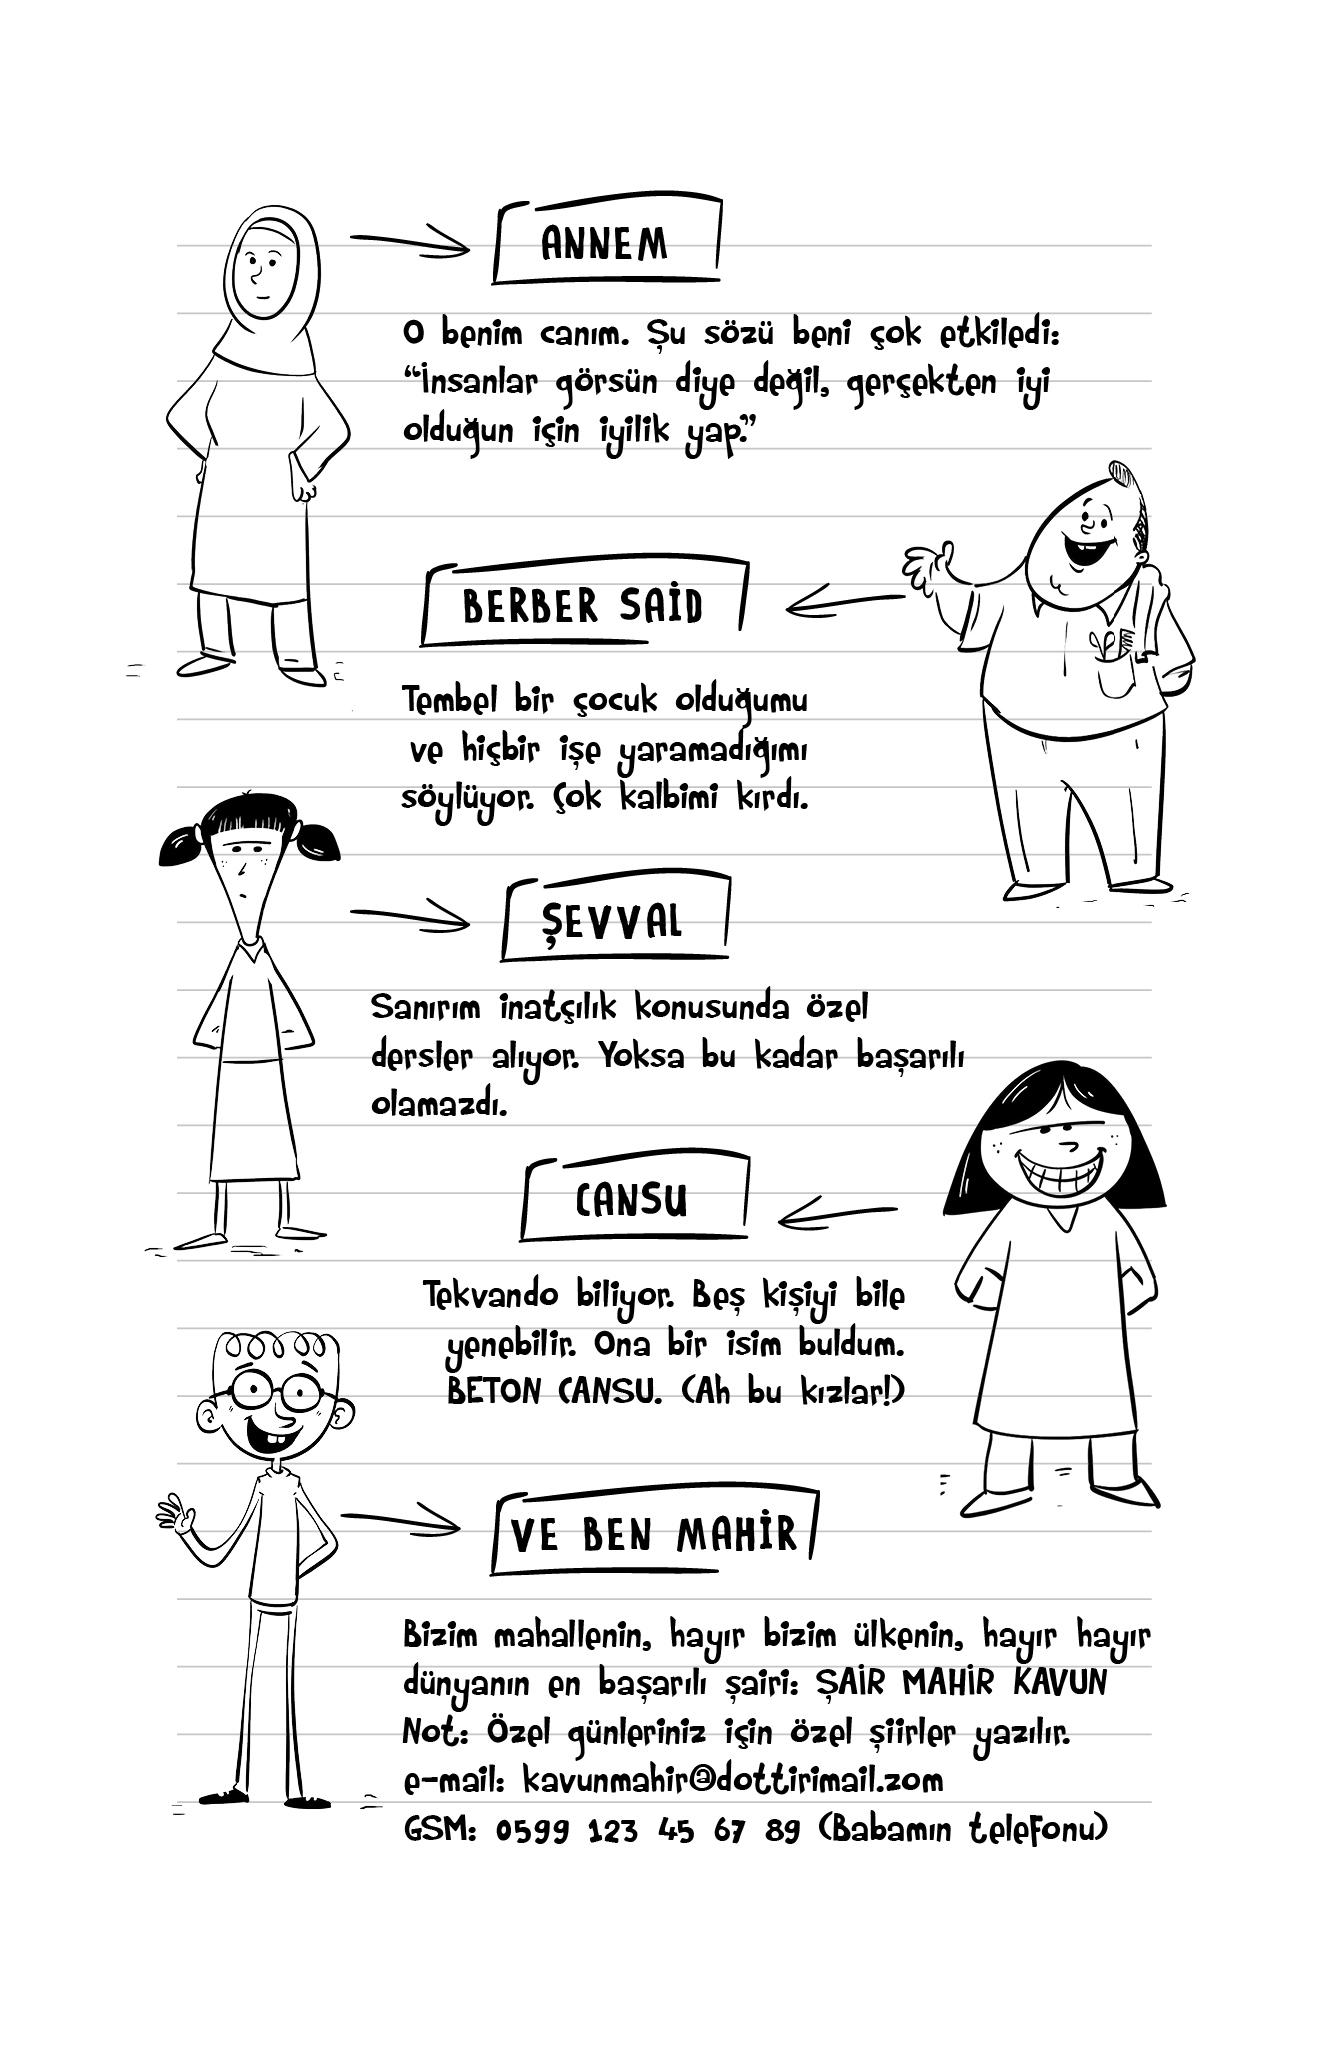 ANNEM
O benim canım. Şu sözü beni çok etkiledi:
“İnsanlar görsün diye değil, gerçekten iyi
olduğun için iyilik yap.”
BERBER SAİD
Tembel bir çocuk olduğumu
ve hiçbir işe yaramadığımı
söylüyor. Çok kalbimi kırdı.
ŞEVVAL
Sanırım inatçılık konusunda özel
dersler alıyor. Yoksa bu kadar başarılı
olamazdı.
CANSU
Tekvando biliyor. Beş kişiyi bile
yenebilir. Ona bir isim buldum.
BETON CANSU. (Ah bu kızlar!)
VE BEN MAHİR
Bizim mahallenin, hayır bizim ülkenin, hayır hayır
dünyanın en başarılı şairi: ŞAİR MAHİR KAVUN
Not: Özel günleriniz için özel şiirler yazılır.
e-mail: kavunmahir@dottirimail.zom
GSM: 0599 123 45 67 89 (Babamın telefonu)